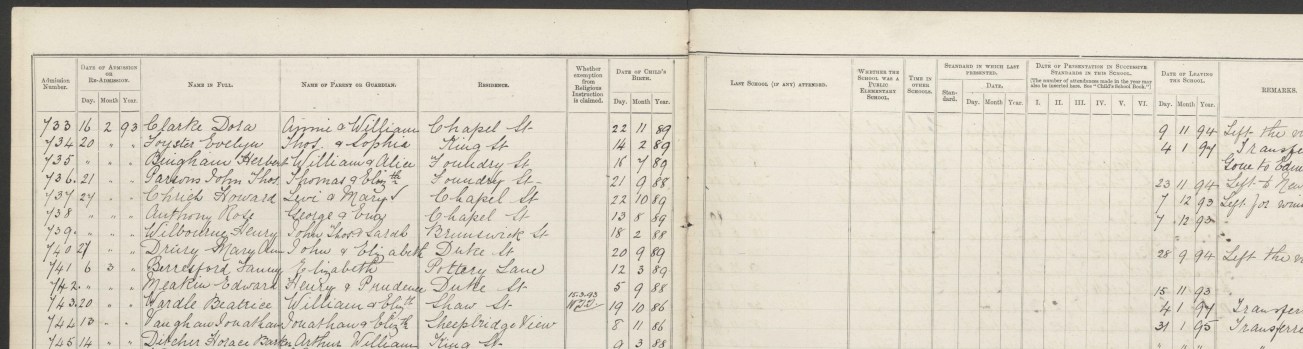 Admission Number. DATE OF ADMISSION OR RE-ADMISSION. Day. Month Year. NAME IN FULL. NAME OF PARENT OR GUARDIAN. RESIDENCE. Whether exemption from Religious Instruction is claimed. DATE OF CHILD'S BIRTH. Day. Month Year. LAST SCHOOL (IF ANY) ATTENDED. WHETHER THE SCHOOL WAS A PUBLIC ELEMENTARY SCHOOL. TIME IN OTHER SCHOOLS. STANDARD IN WHICH LAST PRESENTED. Standard. DATE. Day. Month Year. DATE OF PRESENTATION IN SUCCESSIVE STANDARDS IN THIS SCHOOL. (The number of attendances made in the year may also be inserted here. See "Child's School Book.") I. II. III. IV. V. VI. DATE OF LEAVING THE SCHOOL. Day. Month Year. REMARKS.
733 16 2 93 Clarke Dora Annie & William Chapel St 22 11 89 9 11 94 Left the
734 20 " " Foyster Evelyn Thos. & Sophia King St 14 2 89 4 1 97
735 " " " Bingham Herbert William & Alice Foundry St 16 7 80 Gone to
736. 21 " " Parsons John Thos. Thomas & Elizth Foundry St 21 9 88 23 11 94 Left
737 27 " " Howard Levi & Mary Chapel St 22 10 89 7 12 93 Left for
738 " " " Anthony Rose George & Chapel St 13 8 89 7 12 93
739. " " " Wilbourne Henry John Thos & Sarah Brunswick St 18 2 88
740 27 " " Drury Mary Ann John & Elizabeth Duke St 20 9 89 28 9 94 Left the
741 6 3 " Berresford Fanny Elizabeth Pottery Lane 12 3 89
742. " " " Meakin Edward Henry & Prudence Duke St 5 9 88 15 11 93
743. 20 " " Wardle Beatrice William & Elizth Shaw St 15.3.93 19 10 86 4 1 97
744 13 " " Vaughan Jonathan Jonathan & Elizth Sheepbridge View 8 11 86 31 1 95
745 14 " " Horace Arthur William King St 9 3 88